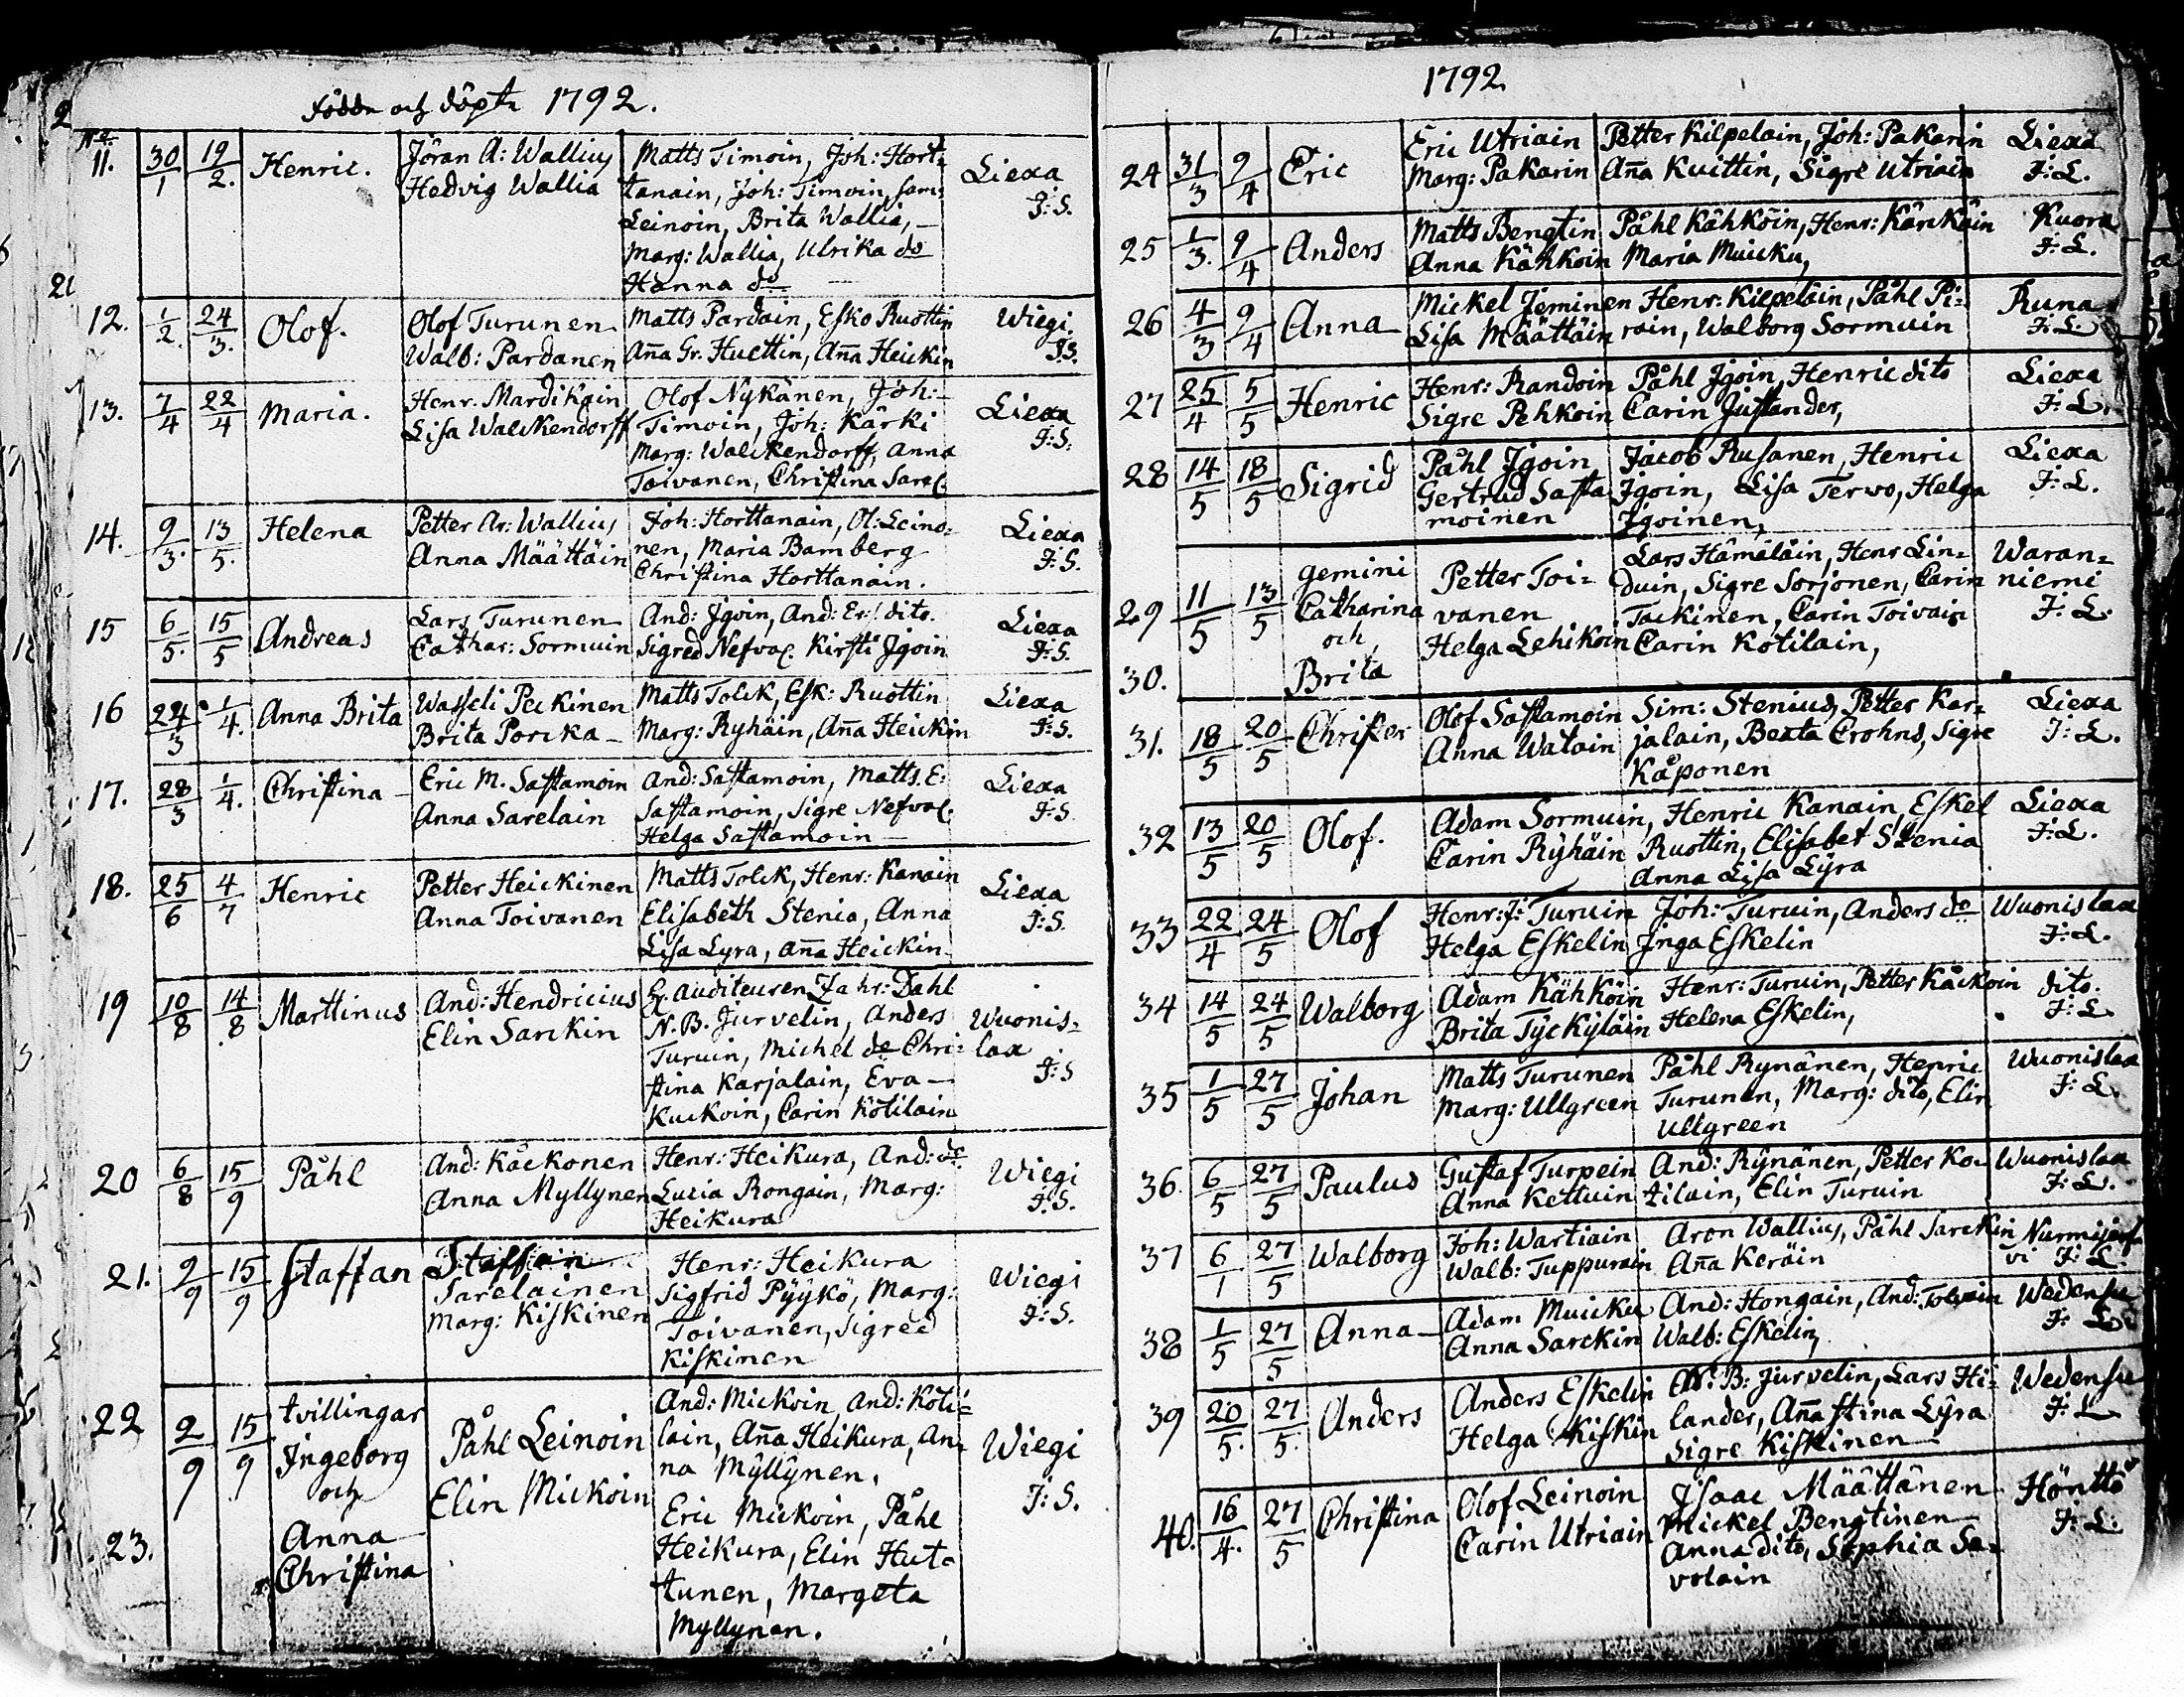 födde och döpte 1792.
No
11. 30/1 19/2. Henric. Jöran A: Wallius Matts Timoin, Joh: Hort- Liexa
Hedvig Wallia tanain, Joh: Timoin, Sam: J:S.
Leinoin, Brita Wallia,
Marg: Wallia, Ulrika do
Hanna do
12. 1/2. 24/3. Olof. Olof Turunen Matts Pardain, Esko Ruottin Wiegi.
Walb: Pardanen Aña Gr. Huettin, Aña Heickin J:S.
13. 7/4 22/4 Maria. Henr. Mardikain Olof Nykänen, Joh: Liexa
Lisa Walckendorff Timoin, Joh: Kärki J:S.
Marg: Walckendorff, Anna
Toivanen, Christina Sarel.
14. 9/3. 13/5. Helena Petter Ar: Wallius Joh: Horttanain, Ol: Leino- Liexa
Anna Määttäin nen, Maria Bamberg J:S.
Christina Horttanain.
15 6/5. 15/5 Andreas Lars Turunen And: Jgoin, And: Er: dito. Liexa
Cathar: Sormuin Sigred Nefval. Kirsti Jgoin J:S.
16 24/3 1/4. Anna Brita Wasseli Peckinen Matts Tolck, Esk: Ruottin Liexa
Brita Porcka Marg: Ryhäin, Aña Heickin J:S.
17. 28/3 1/4. Christina Eric M. Sastamoin And: Sastamoin, Matts. E: Liexa
Anna Sarelain Sastamoin, Sigre Nefval. J:S.
Helga Sastamoin
18. 25/6 4/7 Henric Petter Heickinen Matts Tolck, Henr: Kanain Liexa
Anna Toivanen Elisabeth Stenia, Anna J:S.
Lisa Lyra, Aña Heickin
19 10/8 14/8 Marttinus And: Hendricius Hr. Auditeuren Zahr: Dahl
Elin Sarckin N. B. Jurvelin, Anders Wuonis-
Turuin, Michel do Chri- lax
stina Karjalain, Eva J:S
Kuckoin, Carin Kotilain
20 6/8 15/9 Påhl And: Kåckonen Henr: Heikura, And: do Wiegi
Anna Myllynen Lucia Rongain, Marg: J:S.
Heikura
21. 9/9 15/9 Staffan Staffan Henr: Heikura Wiegi
Sarelainen Sigfrid Pyykö, Marg: J:S.
Marg: Kiskinen Toivanen, Sigred
Kiskinen
22 2/9 15/9 tvillingar And: Mickoin, And: Koti-
Ingeborg Påhl Leinoin lain, Aña Heikura, An- Wiegi
och Elin Mickoin na Myllynen. J:S.
23. Anna Eric Mickoin, Påhl
Christina Heikura, Elin Hut-
tunen, Margeta
Myllynen.
1792.
24 31/3 9/4 Eric Eric Utriain Petter Kilpelain, Joh: Pakarin Liexa
Marg: Pakarin Aña Kuittin, Sigre Utriain J:L.
25 1/3. 9/4 Anders Matts Bengtin Påhl Kähköin, Henr: Kärckäin Kuora
Anna Kähköin Maria Muicku, J:L.
26 4/3 9/4 Anna Mickel Jeminen Henr: Kilpeläin, Påhl Pi- Runa
Lisa Määttäin rain, Walborg Sormuin J:L.
27 25/4 5/5 Henric Henr: Randoin Påhl Jgoin, Henric dito Liexa
Sigre Pehkoin Carin Justander, J:L.
28 14/5 18/5 Sigrid Påhl Jgoin Jacob Rusanen, Henric Liexa
Gertrud Sasta Jgoin, Lisa Terwo, Helga J:L.
moinen Jgoinen,
29 11/5 13/5 gemini Petter Toi- Lars Hämäläin, Henr Lin- Waran-
Catharina vanen duin, Sigre Sorjonen, Carin niemi
och Helga Lehikoin Tackinen, Carin Toivain J:L.
30. Brita Carin Kotilain,
31. 18/5 20/5 Christer Olof Sastamoin Sim: Stenius, Petter Kar- Liexa
Anna Watain jalain, Beata Crohns, Sigre J:L.
Kåponen
32 13/5 20/5 Olof. Adam Sormuin, Henric Kanain, Eskel Liexa
Carin Ryhäin Ruottin, Elisabet Stenia J:L.
Anna Lisa Lyra
33 22/4 24/5 Olof Henr: J: Turuin Joh: Turuin, Anders do Wuonislax
Helga Eskelin Jnga Eskelin J:L.
34 14/5 24/5 Walborg Adam Kähköin Henr: Turuin, Petter Kåckoin dito.
Brita Tyckyläin Helena Eskelin, J:L.
35 1/5 27/5 Johan Matts Turunen Påhl Rynänen, Henric Wuonislax
Marg: Ullgreen Turunen, Marg: dito, Elin J:L.
Ullgreen
36. 6/5 27/5 Paulus Gustaf Turpein And: Rynänen, Petter Ko- Wuonislax
Anna Kettuin tilain, Elin Turuin J:L.
37 6/1 27/5 Walborg Joh: Wartiain Aron Wallius, Påhl Sarckin Nurmijerf
Walb: Tuppurain Aña Keräin vi J:L.
38 1/5 27/5 Anna Adam Muicku And: Hongain, And: Tolvain Wedensu
Anna Sarckin Walb: Eskelin, J:L.
39 20/5. 27/5. Anders Anders Eskelin N: B: Jurvelin, Lars Hi- Wedensu
Helga Kiskin lander, Aña Stina Lyra J:L
Sigre Kiskinen
40. 16/4. 27/5 Christina Olof Leinoin Jsaac Määttänen Hönttö
Carin Utriain Mickel Bengtinen J:L.
Anna dito, Sophia Sa-
volain